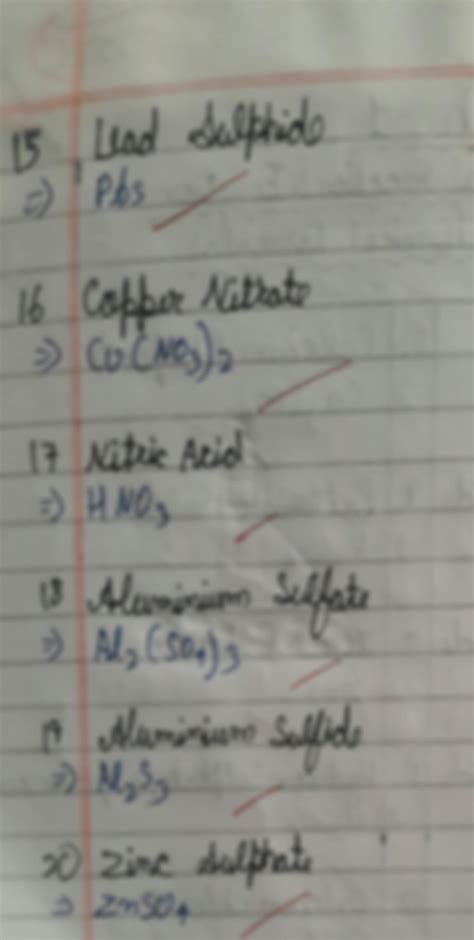 15 Lead Sulphide
=> Pbs
16 Copper Nitrate
=> Cu(NO3)2
17 Nitric Acid
=> HNO3
18 Aluminium Sulfate
=> Al2(SO4)3
19 Aluminium Sulfide
=> Al2S3
20 Zinc Sulphate
=> ZnSO4